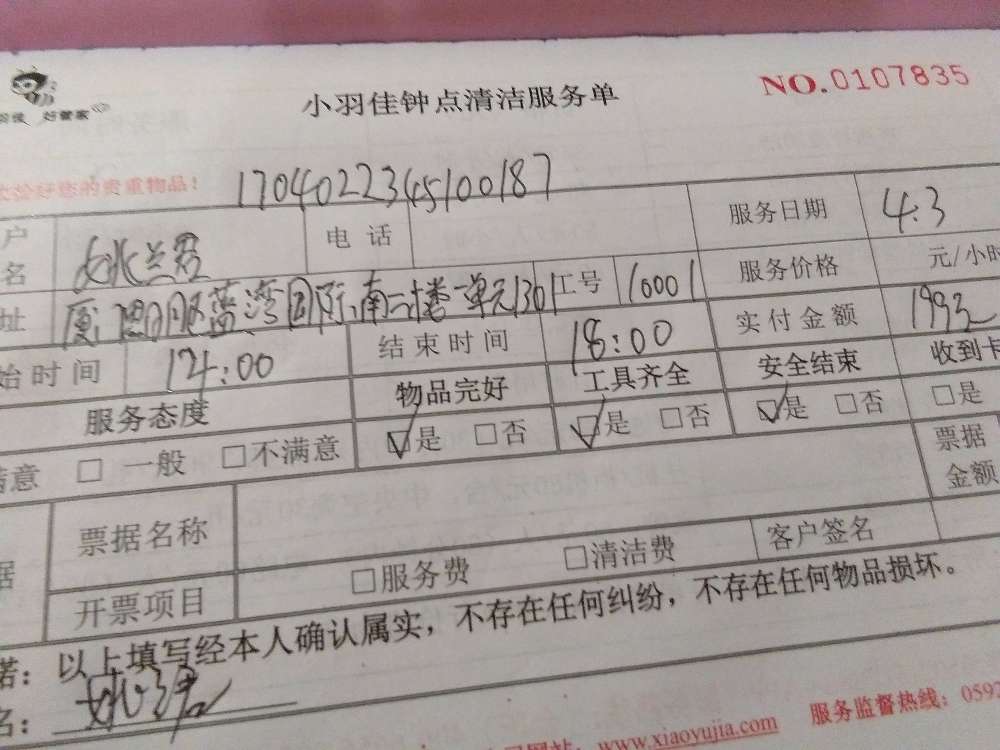 好管家
小羽佳钟点清洁服务单
NO.0107835
您的贵重物品!
1704022345100187
户名 姚兰君 电话 服务日期 4.3
址 蓝湾国际南二楼一单元1301 工号 10001 服务价格 元/小时
始时间 14:00 结束时间 18:00 实付金额 1992 收到卡
服务态度 物品完好 工具齐全 安全结束
满意 □ 一般 □不满意 ☑是 □否 ☑是 □否 ☑是 □否 □是
票据名称 票据金额
开票项目 □服务费 □清洁费 客户签名
诺: 以上填写经本人确认属实,不存在任何纠纷,不存在任何物品损坏。
名:
网站: www.xiaoyujia.com 服务监督热线: 0592